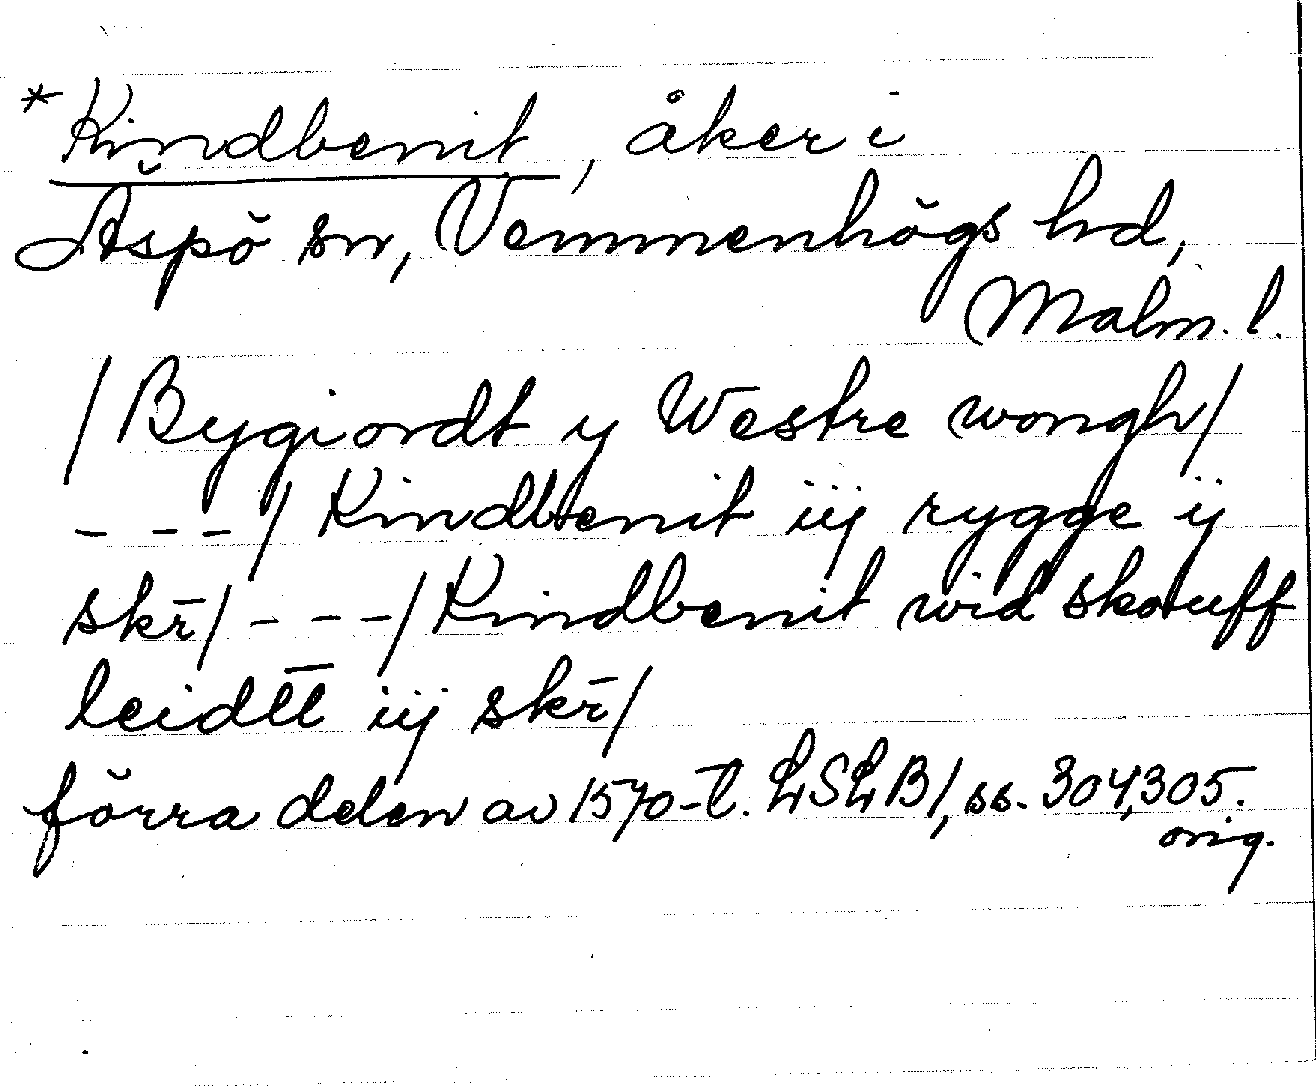 *Kindbenit, åker i
Äspö sn, Vemmenhögs hd,
Malm. l.
/Bygiordt y Westre wongh/
- - -/ Kindbenit iij rygge ij
skr̄/ - - -/ Kindbenit wid skouff
leidtt̄ iij skr̄/
förra delen av 1570-t. LSLB1, ss. 304,305.
orig.